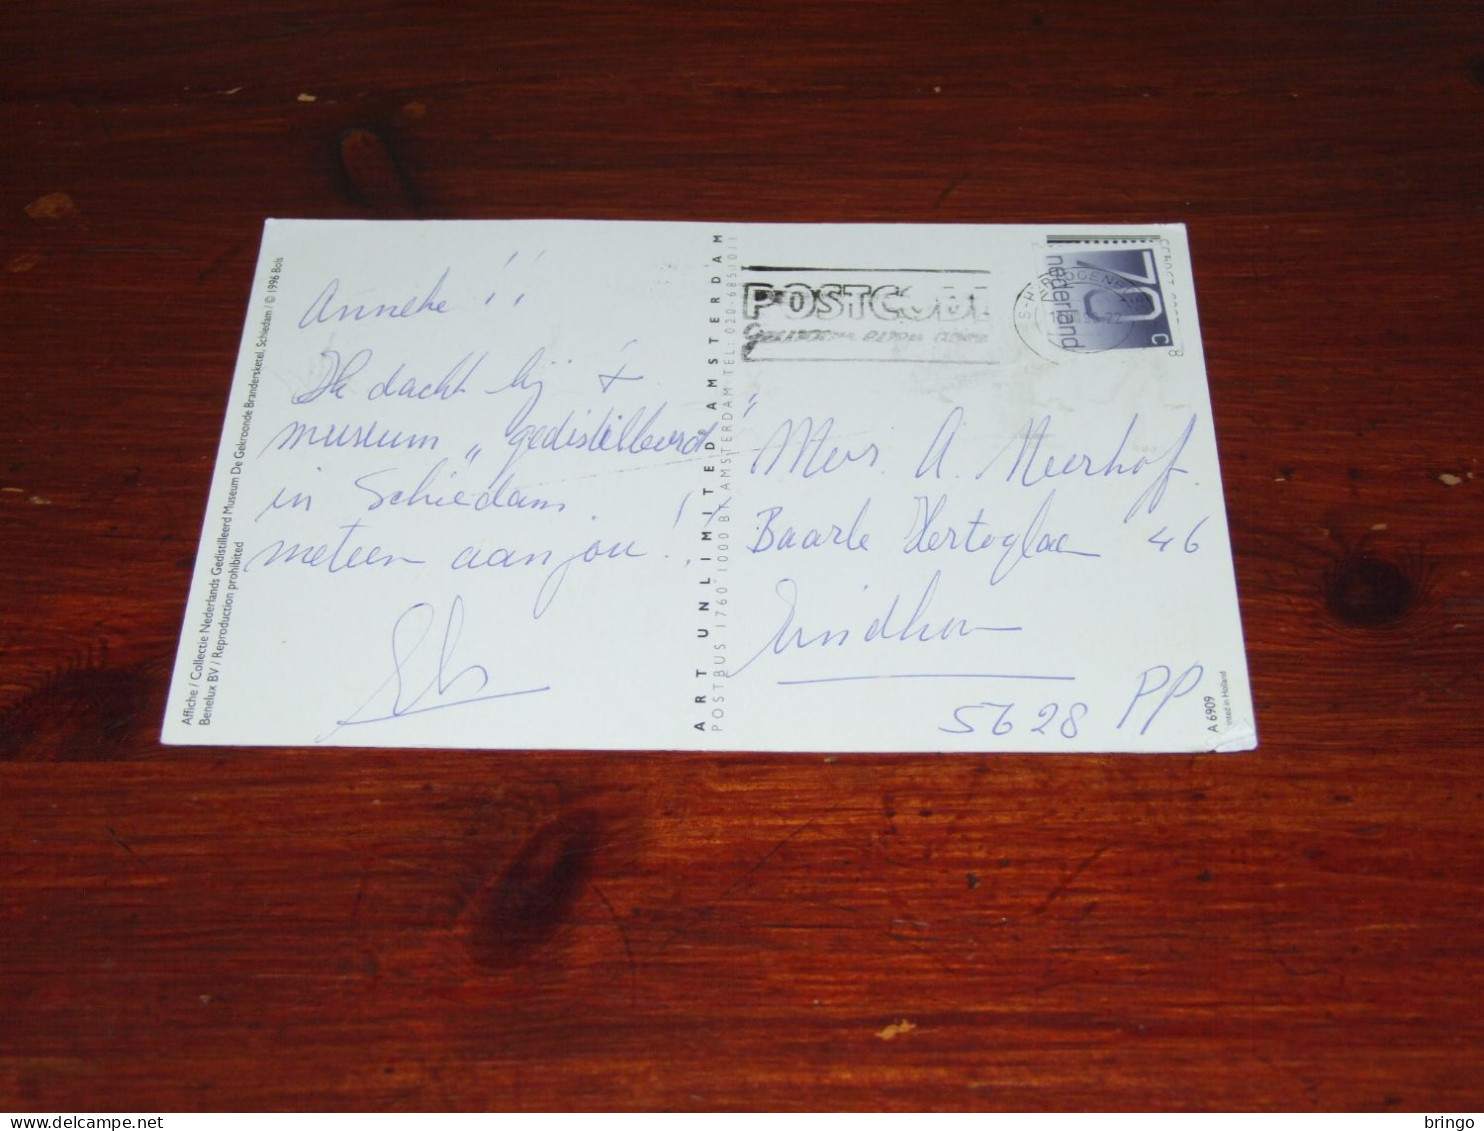 Affiche / Collectie Nederlands Gedistilleerd Museum De Gekroonde Brandersketel, Schiedam / © 1996 Bols
Benelux BV / Reproduction prohibited
Anneke !!
Ik dacht bij 't
museum „gedistilleerd”
in Schiedam.
meteen aan jou!!
ART UNLIMITED® AMSTERDAM
POSTBUS 1760 1000 BR AMSTERDAM TEL: 020-6851011
POSTCODE
nederland
70
C
Mevr. A. Meerhof.
Baarle Hertoglaan 46
Eindhoven
5628 PP
A 6909
Printed in Holland
bringo